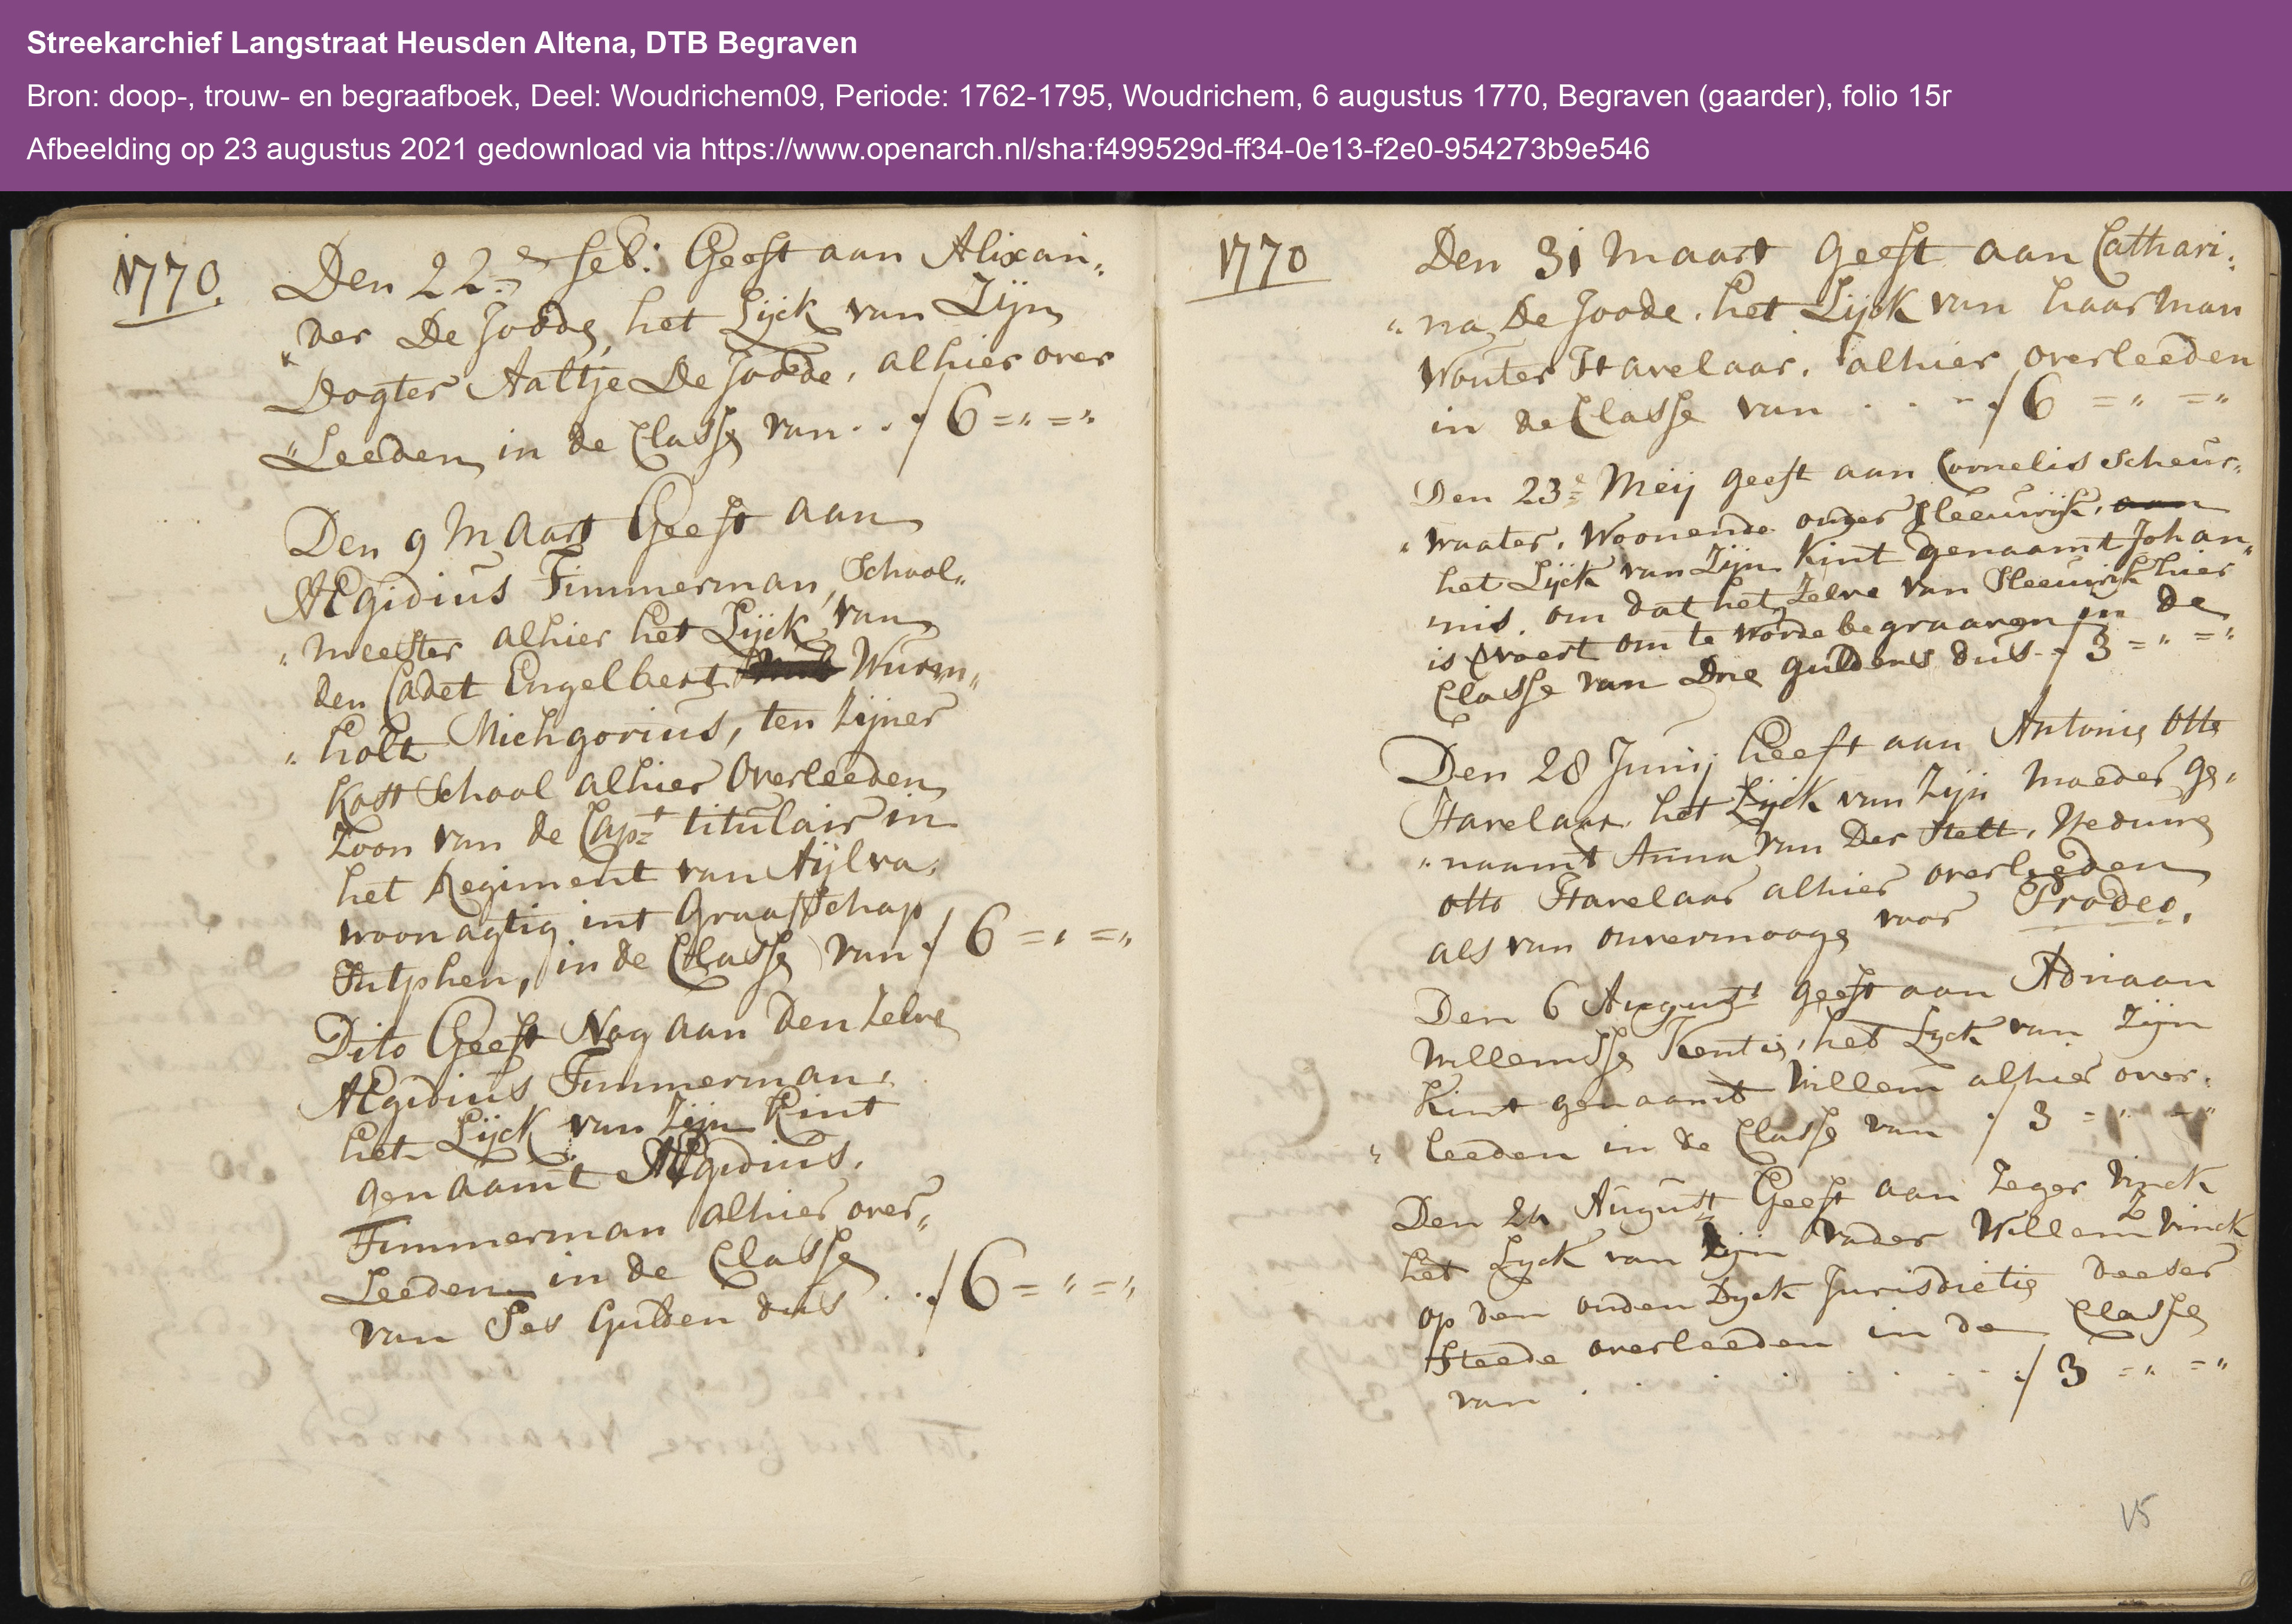 Streekarchief Langstraat Heusden Altena, DTB Begraven
Bron: doop-, trouw- en begraafboek, Deel: Woudrichem09, Periode: 1762-1795, Woudrichem, 6 augustus 1770, Begraven (gaarder), folio 15r
Afbeelding op 23 augustus 2021 gedownload via https://www.openarch.nl/sha:f499529d-ff34-0e13-f2e0-954273b9e546
1770.
Den 22=e feb: Geeft aan Alixan„
„der De Joode, het Lijck van Zijn
Dogter Aaltje De Joode, alhier over
„Leeden in de Classe van . . f 6 = „ = „
Den 9 Maart Geeft aan
Ægidius Timmerman, School„
„meester alhier het Lijck van
den Cadet Engelbert Wurm„
„holt Michgorius, ten zijner
Kost School alhier Overleeden
Zoon van de Capt titulair in
het Regiment van Aijlva,
woonagtig int Graafschap
Zutphen, in de Classe van f 6 = „ = „
Dito Geeft Nog aan den zelve
Ægidius Timmerman,
het Lijck van Zijn Kint
genaamt Ægidius,
Timmerman alhier over„
Leeden in de Classe
van Ses Gulden dus . . f 6 = „ = „
1770
Den 31 Maart Geeft aan Cathari„
„na De Joode, het Lijck van haar man
Wouter Havelaar, alhier overleeden
in de Classe van . . . f 6 = „ = „
Den 23e Meij geeft aan Cornelis Scheur„
„waater, Woonende onder Sleeuwijk, aan
het Lijck van Zijn Kint genaamt Johan„
„nis, om dat het zelve van Sleeuwijk hier
is gvoert om te worde begraaven in de
Classe van Drie guldens dus . f 3 = „ = „
Den 28 Junij Geeft aan Antonie Otto
Havelaar het Lijck van Zijn moeder ge„
„naamt Anna van Der Stelt, Weduwe
otto Havelaar alhier overleeden
als van onvermooge voor Prodeo.
Den 6 August geeft aan Adriaan
Willemsse Kentie, het Lyck van Zijn
Kint genaamt Willem alhier over„
„leeden in de Classe van f 3 = „ = „
Den 24 August Geeft aan Zeger Vinck
het Lyck van zijn vader Willem Z Vinck
op den ouden Dyck Jurisdictie deeser
Steede overleeden in de Classe
van . . . . . . f 3 = „ = „
15